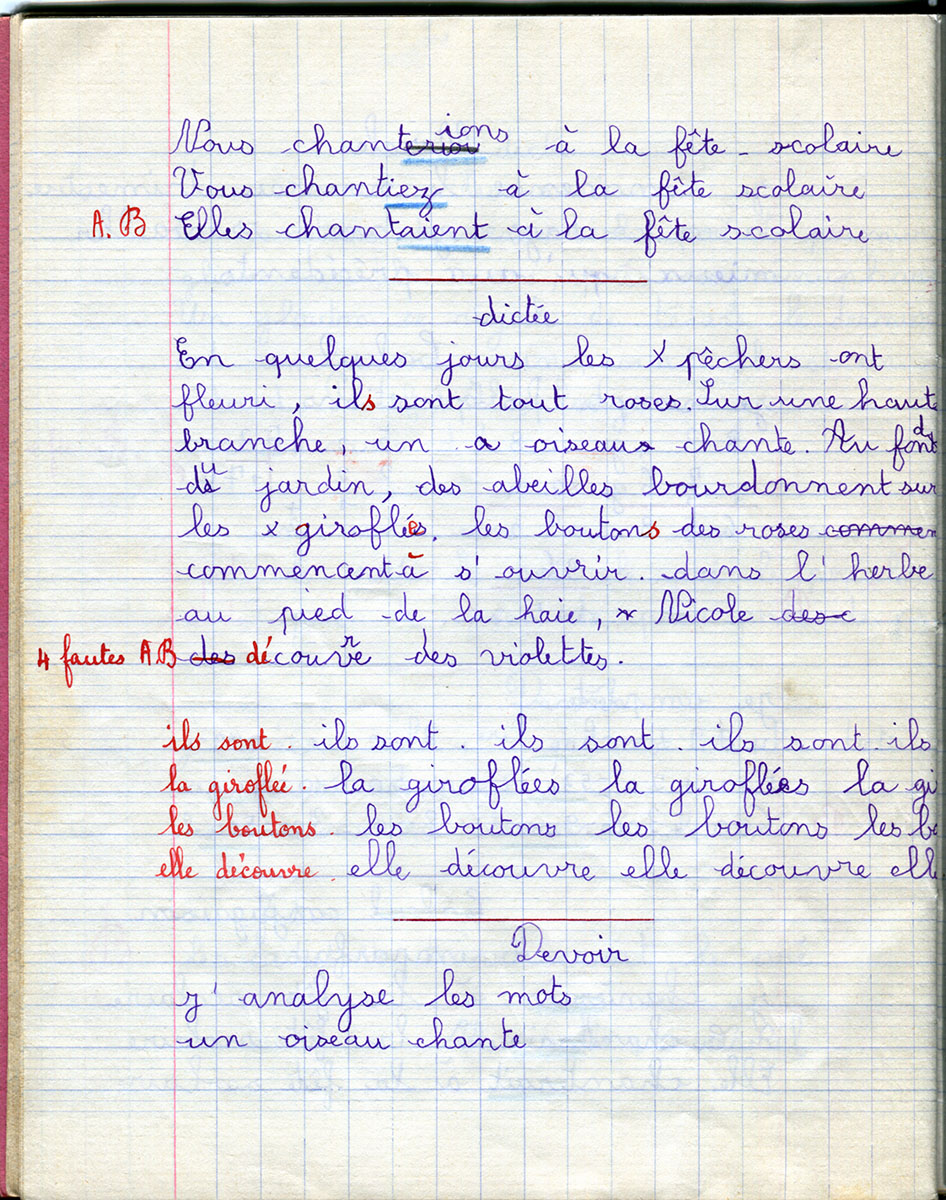 Nous chantions à la fête scolaire
Vous chantiez à la fête scolaire
A.B Elles chantaient à la fête scolaire
dictée
En quelques jours les x pêchers ont
fleuri, ils sont tout roses. Sur une haute
branche, un a oiseaux chante. Au fond
du jardin, des abeilles bourdonnent sur
les x giroflées, les boutons des roses commen
commencent à s'ouvrir. dans l'herbe
au pied de la haie, x Nicole des
4 fautes A.B des découvre des violettes.
ils sont. ils sont. ils sont. ils sont. ils
la giroflée. la giroflées la giroflées la gi
les boutons. les boutons les boutons les b
elle découvre. elle découvre elle découvre elle
Devoir
J'analyse les mots
un oiseau chante